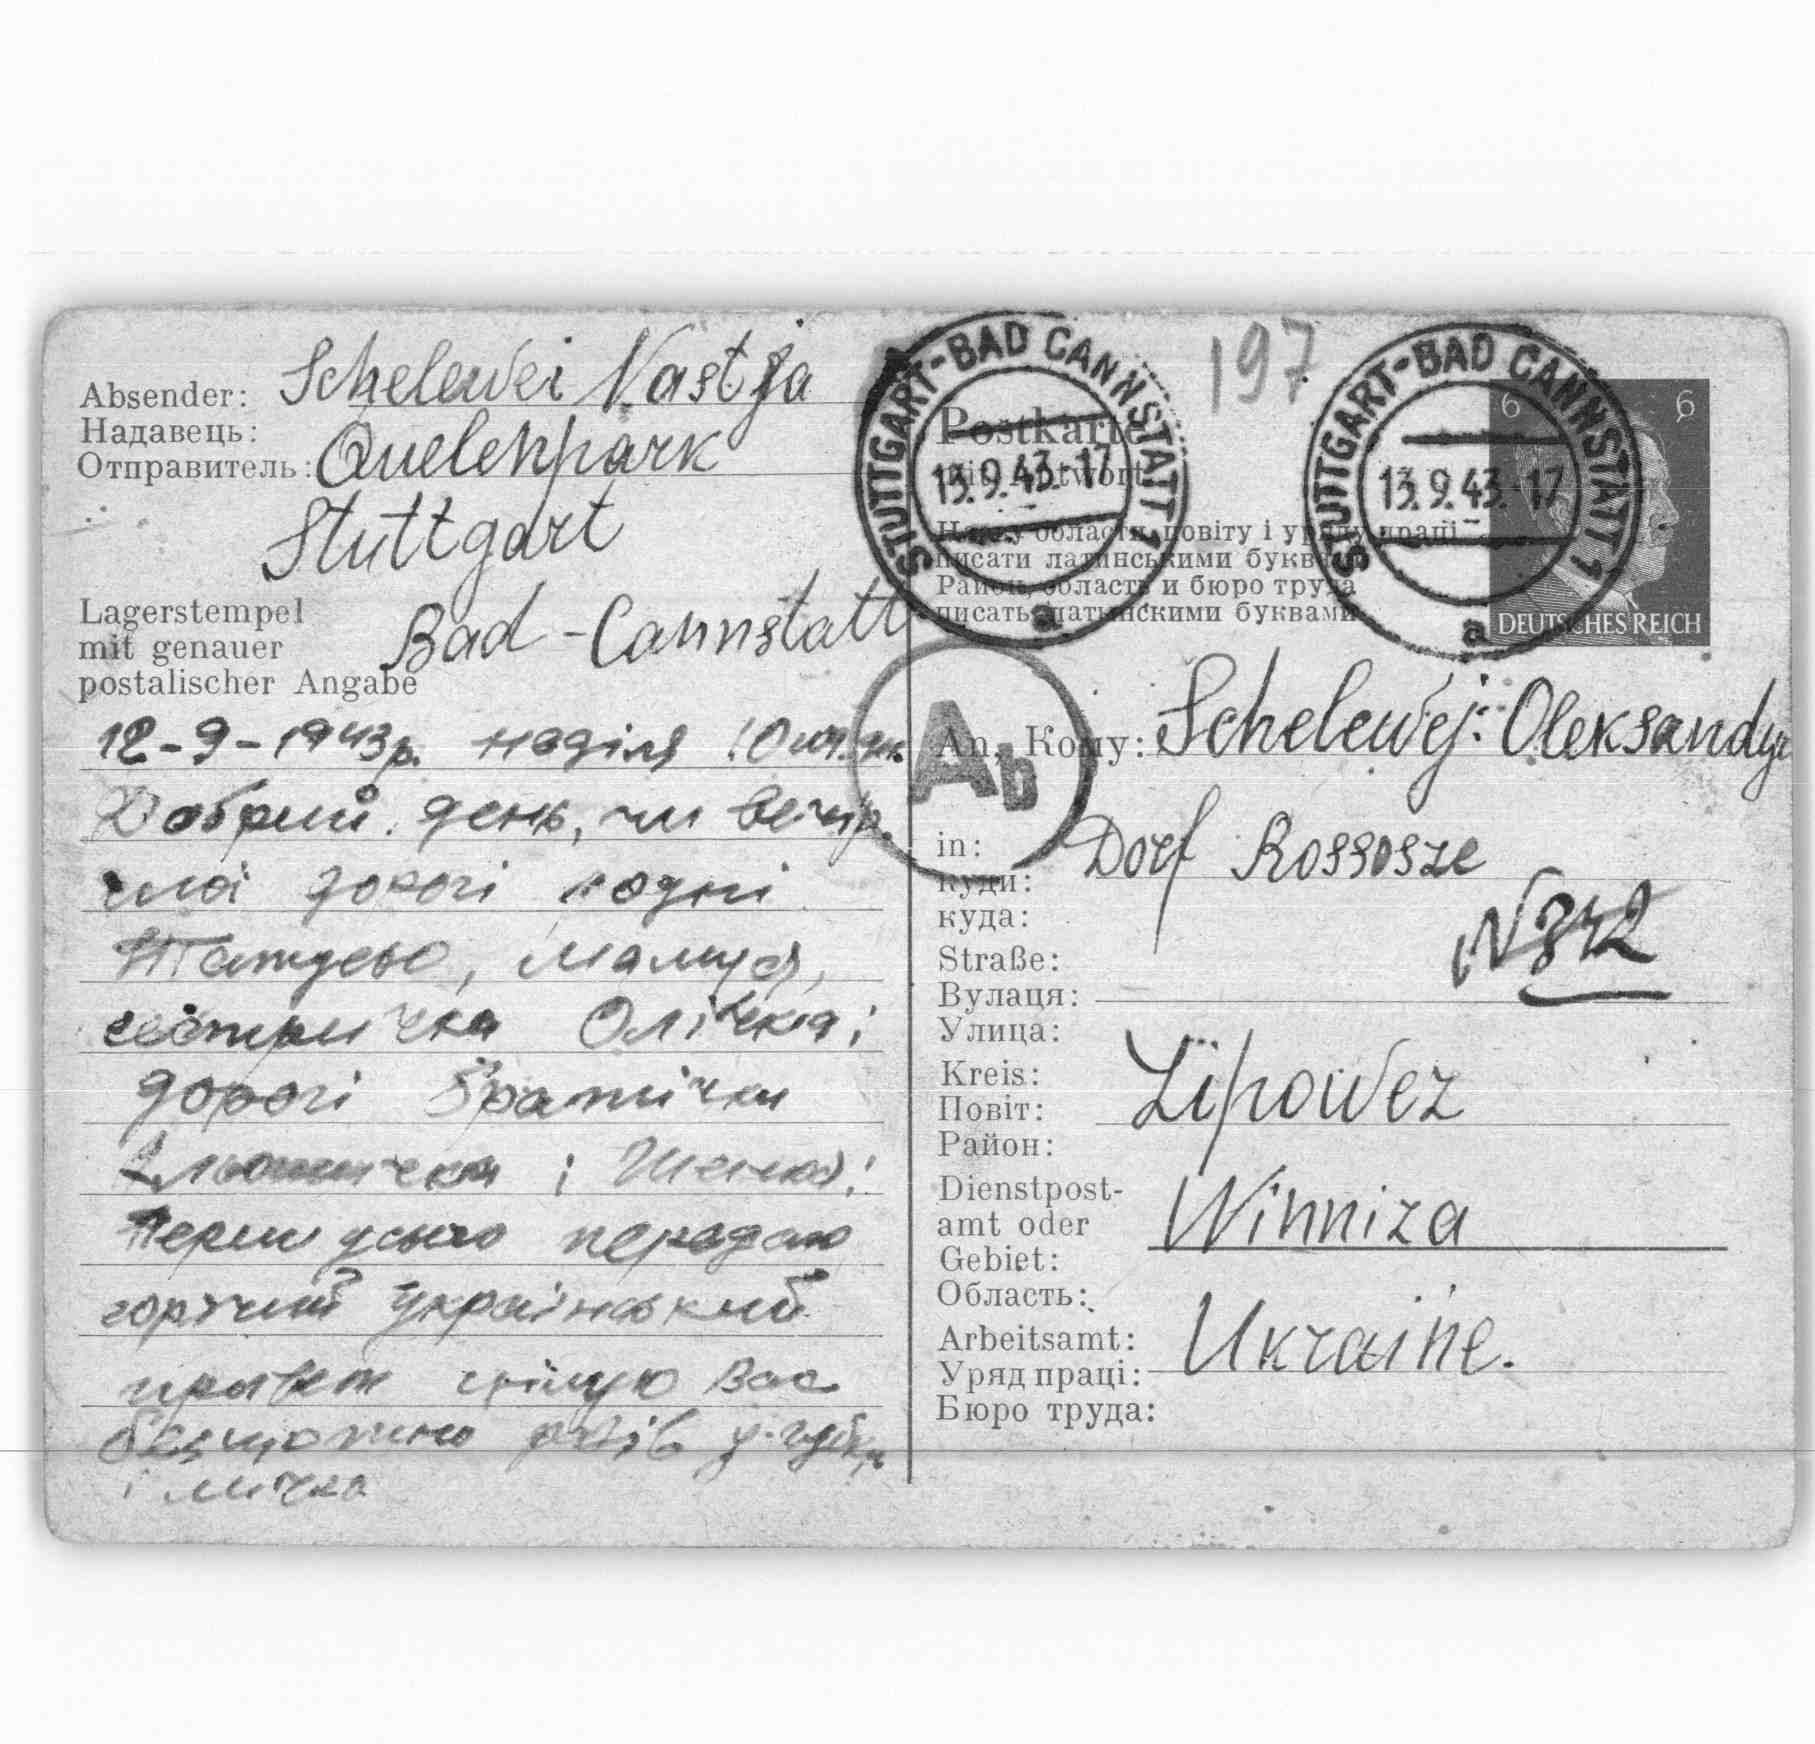 Absender: Schelewei Nastja
Надавець:
Отправитель: Quelenpark
Stuttgart
Lagerstempel
mit genauer
postalischer Angabe
Bad-Cannstatt
12-9-1943р. неділя
Добрий день, чи вечір.
мої дорогі родні
Татусьо, Мамуся,
сестричка Олічка і
дорогі братічки
і
Перш усього передаю
горячий український
привет цілую Вас
безщотно разів у губки
і лічка
STUTTGART-BAD CANNSTATT 1
13.9.43.-17
a
197
STUTTGART-BAD CANNSTATT 1
13.9.43.-17
a
6 6
DEUTSCHES REICH
Postkarte
mit Antwort
Назву области, повіту і уряду праці
писати латинськими буквами
Район, область и бюро труда
писать латынскими буквами
Ab
An, Кому: Schelewej: Oleksandr
in: Dorf Rossosze
куди:
куда:
N 342
Straße:
Вулаця:
Улица:
Kreis: Lipowez
Повіт:
Район:
Dienstpost-
amt oder Winniza
Gebiet:
Область:
Arbeitsamt: Ukraine.
Уряд праці:
Бюро труда: